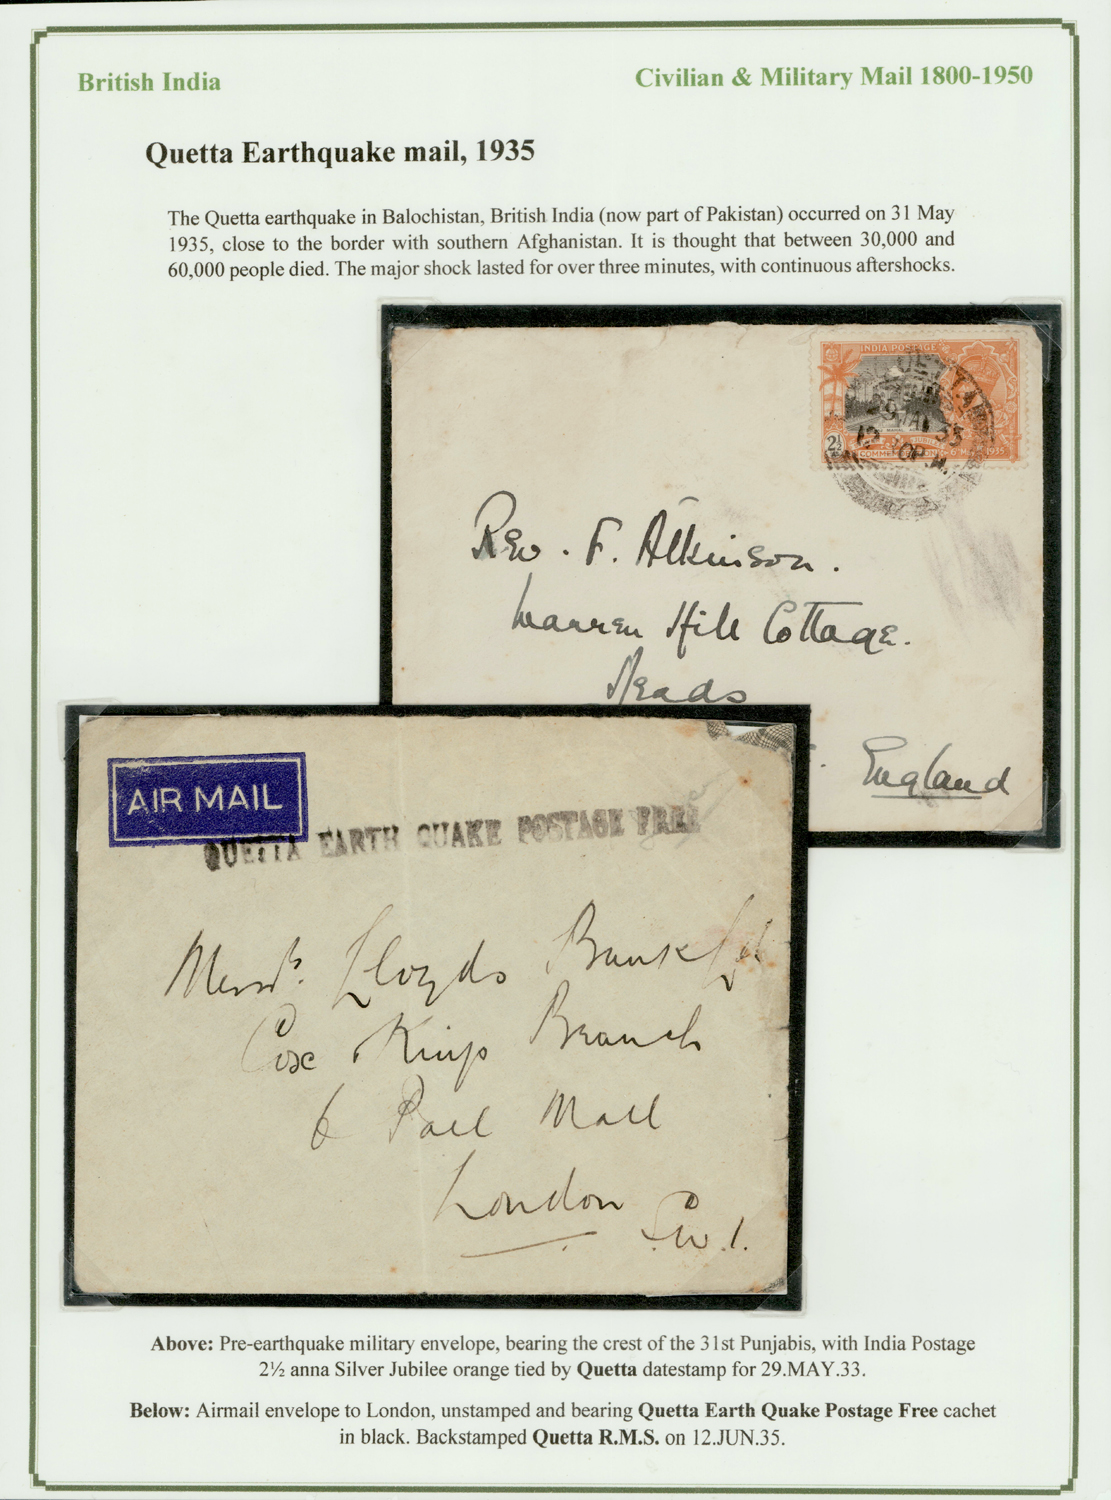 British India
Civilian & Military Mail 1800-1950
Quetta Earthquake mail, 1935
The Quetta earthquake in Balochistan, British India (now part of Pakistan) occurred on 31 May
1935, close to the border with southern Afghanistan. It is thought that between 30,000 and
60,000 people died. The major shock lasted for over three minutes, with continuous aftershocks.
INDIA POSTAGE
QUETTA
33
2½
1935
Rev. F. Atkinson.
Warren Hill Cottage.
Meads
England
AIR MAIL
QUETTA EARTH QUAKE POSTAGE FREE
Messrs. Lloyds Bank Ltd
Cox & Kings Branch
6 Pall Mall
London
S.W.1.
Above: Pre-earthquake military envelope, bearing the crest of the 31st Punjabis, with India Postage
2½ anna Silver Jubilee orange tied by Quetta datestamp for 29.MAY.33.
Below: Airmail envelope to London, unstamped and bearing Quetta Earth Quake Postage Free cachet
in black. Backstamped Quetta R.M.S. on 12.JUN.35.